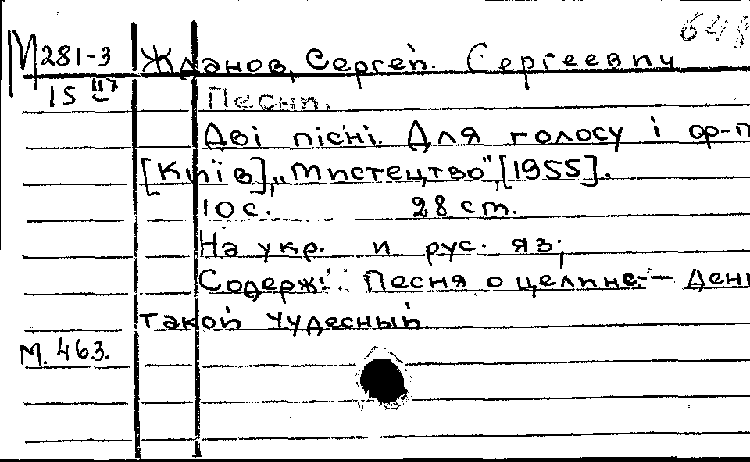 648
М281-3 Жданов, Сергей Сергеевич
15 III
Песни.
Дві пісні. Для голосу і ф-п
[Київ], „Мистецтво", [1955].
10 с. 28 cm.
На укр. и рус. яз.
Содерж: Песня о целине.— День
такой чудесный
М. 463.